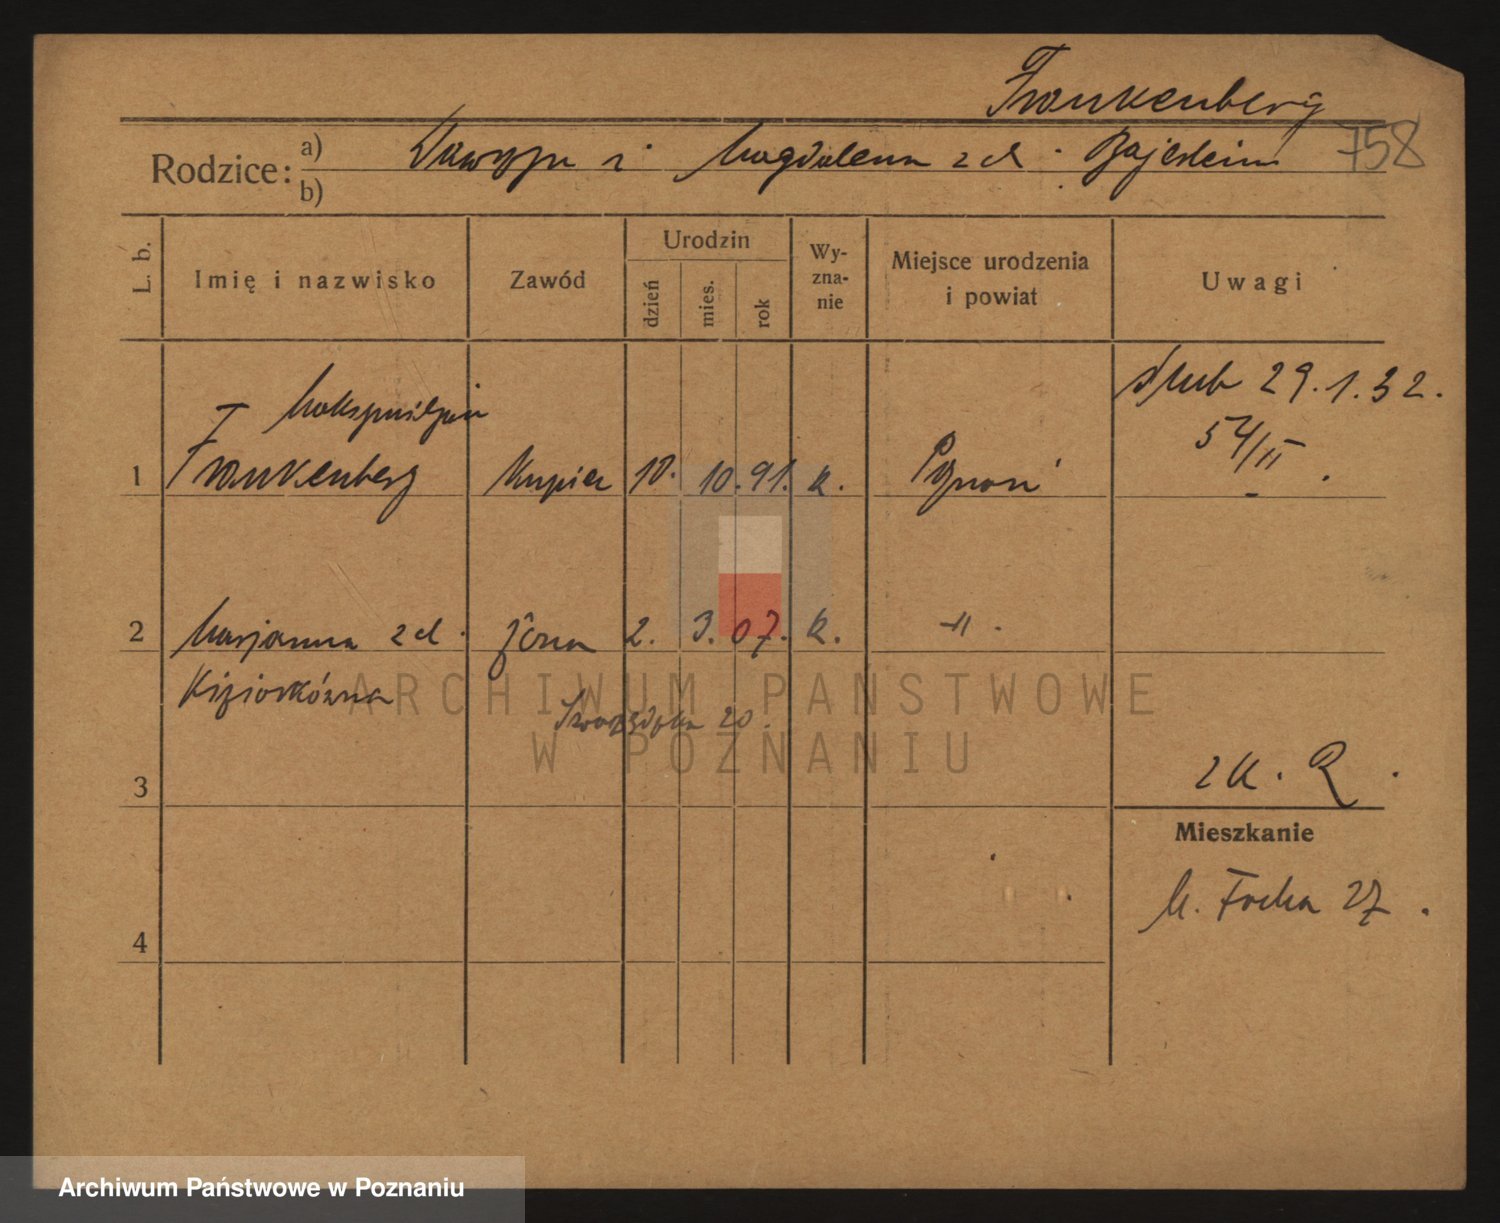 Frankenberg
758
Rodzice: a) i Magdalena zd.
b)
L. b.
Imię i nazwisko
Zawód
Urodzin
dzień
mies.
rok
Wy-
zna-
nie
Miejsce urodzenia
i powiat
Uwagi
Maksymiljan
1 Frankenberg Kupiec 10. 10. 91. k. Poznań
ślub 29.1.32.
54/II
2 Marjanna zd. żona 2. 3. 07. k. -II-
Kiziorkówna
20.
3
2 k. R.
Mieszkanie
M. Focha 27.
4
ARCHIWUM PAŃSTWOWE
W POZNANIU
Archiwum Państwowe w Poznaniu